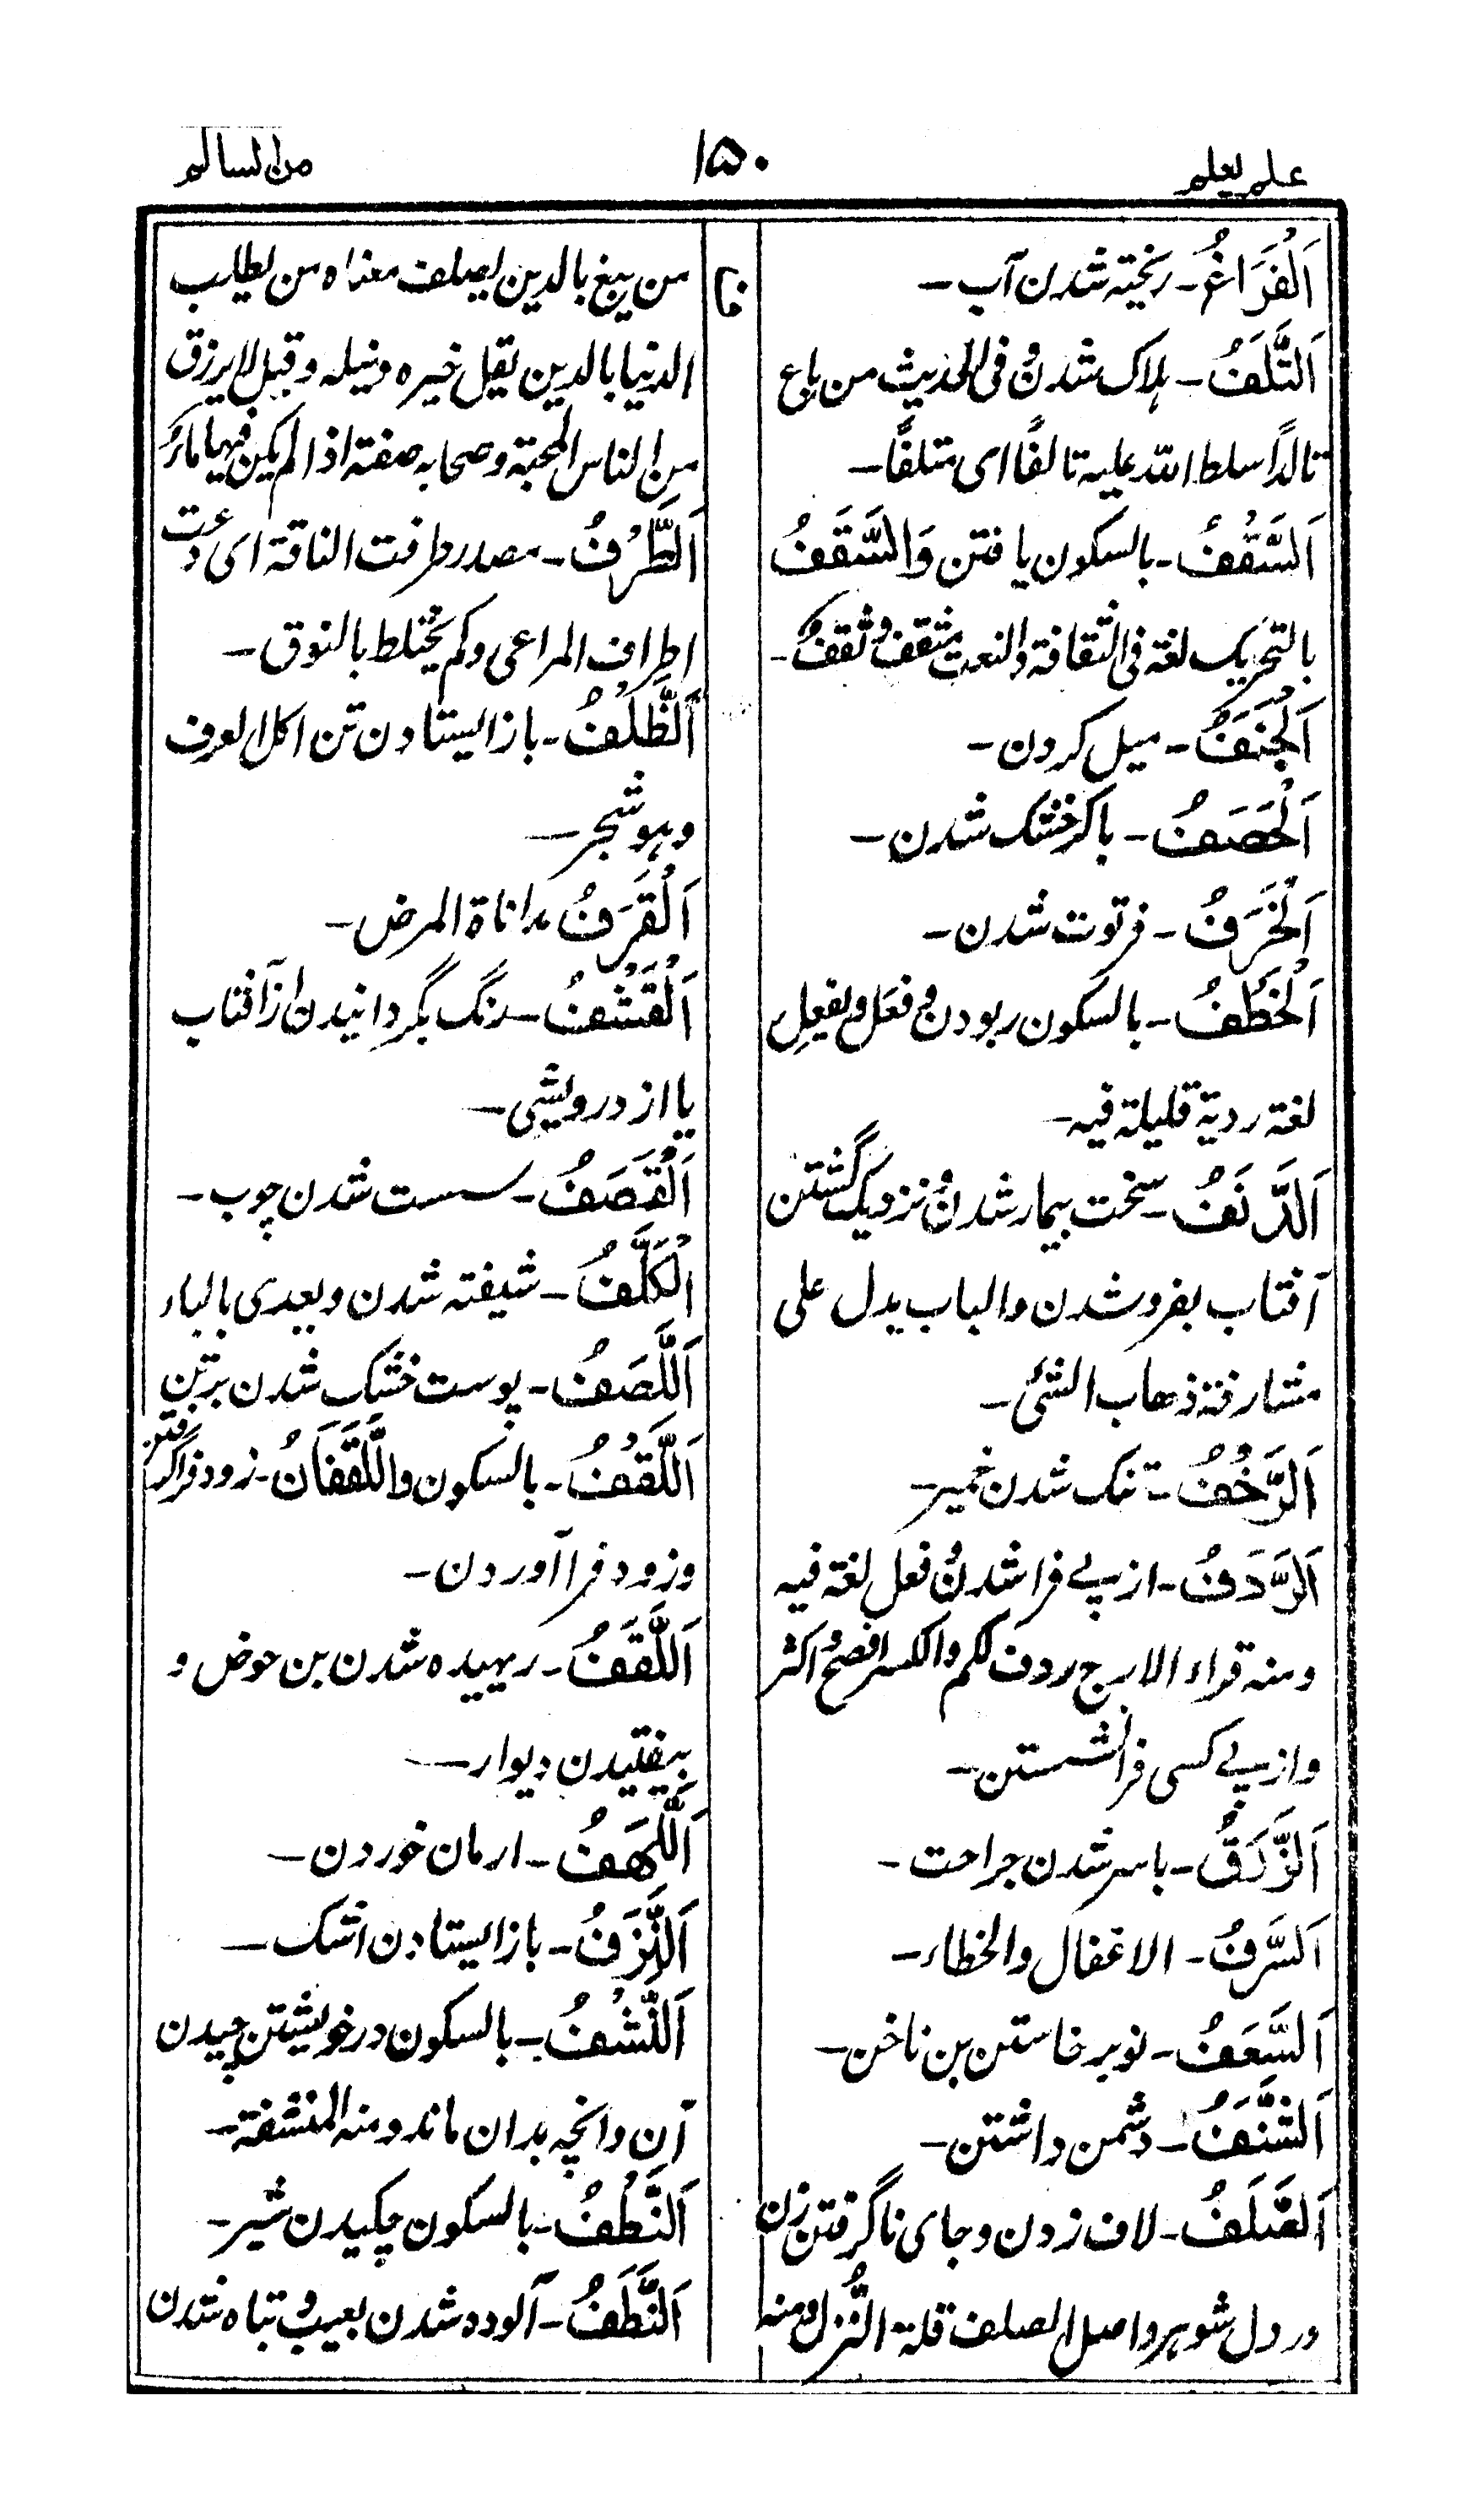 علم یعلم
۱۵۰
من السالم
اَلْفَرَاغُ - ریختہ شدن آب -
اَلتَّلَفُ - ہلاک شدن و فی الحدیث من باع
تالدًا سلط اللہ علیہ تالفًا ای متلفًا -
بالسکون یافتن
بالتحریک لغۃ فی الثقافۃ والنعت
اَلْجَنَفُ - میل کردن -
اَلْحَصَفُ - باکر خشک شدن -
اَلْخَرَفُ - فرتوت شدن -
اَلْخَطْفُ - بالسکون ربودن و فعَل یفعِل
لغۃ ردیۃ قلیلۃ فیہ -
اَلدَّنَفُ - سخت بیمار شدن و نزدیک گشتن
آفتاب بفرو شدن والباب یدل علی
مشارفۃ ذھاب الشئ -
اَلرَّخَفُ - تنک شدن خمیر -
اَلرَّدَفُ - از پے فرا شدن و فعل لغۃ فیہ
ومنہ قراء الاعرج ردف لکم والکسر افصح و اکثر
واز پے کسی فرانشستن -
باسر شدن جراحت -
اَلسَّرَفُ - الاغفال والخطاء -
اَلسَّعَفُ - نوبر خاستن بن ناخن -
اَلشَّنَفُ - دشمن داشتن -
اَلصَّلَفُ - لاف زدن و جای ناگرفتن زن
در دل شوہر و اصل الصلف قلۃ النُّزل ومنہ
من یبغ بالدین یصلف معناہ من یطلب
الدنیا بالدین یقل خیرہ و نیلہ و قیل لا یرزق
من الناس المحبۃ وصحابہ صفتہ اذا لم یکن فیہا ماء
اَلطَّرَفُ - مصدر طرفت الناقۃ ای رعت
اطراف المراعی و لم یختلط بالنوق -
اَلظَّلَفُ - باز ایستادن تن
وہو شجر -
اَلْقَرَفُ مداناۃ المرض -
اَلْقَشَفُ - رنگ بگردانیدن از آفتاب
یا از درویشی -
اَلْقَصَفُ - سست شدن چوب -
اَلْکَلَفُ - شیفتہ شدن و یعدی بالباء
اَللَّصَفُ - پوست خشک شدن بر تن
اَللَّقْفُ - بالسکون واللَّقَفَانُ - زود فراگرفتن
و زود فرا آوردن -
اَللَّقَفُ - ریہیدہ شدن بن حوض و
بیفتیدن دیوار -
اَللَّہَفُ - ارمان خوردن -
اَلنَّزَفُ - باز ایستادن اشک -
اَلنَّشْفُ - بالسکون در خویشتن چیدن
آن و آنچہ بدان ماند و منہ المنشفۃ -
اَلنَّطْفُ - بالسکون چکیدن شیر -
اَلنَّطَفُ - آلودہ شدن بعیب و تباہ شدن